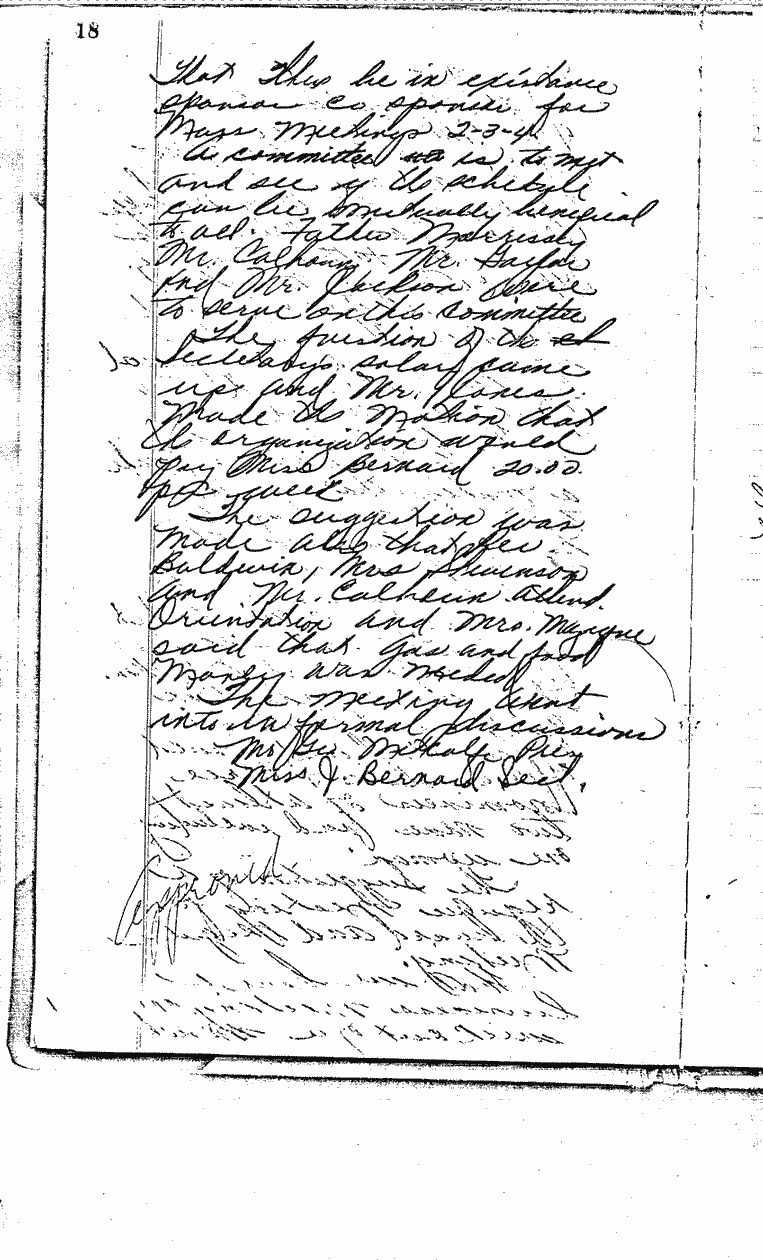 18
That this be in existance
sponsor co sponsor for
Mass Meetings 2-3-4
A committee is to met
and see if the schedule
can be mutually benefical
to all. Father Morrissey
Mr. Calhoun Mr.
and Mr. Jackson were
to serve on this committee
The question of the
Secretary's salary came
up and Mr. Jones
made the motion that
the organization would
pay Miss Bernard 20.00
per week
The suggestion was
made also that Rev
Baldwin, Mrs Stevenson
and Mr. Calhoun attend
Orientation and Mrs.
said that gas and food
Money was needed
The meeting went
into in formal discussions
Mr Geo. Metcalf Prex
Miss J. Bernard Sect.
Approved